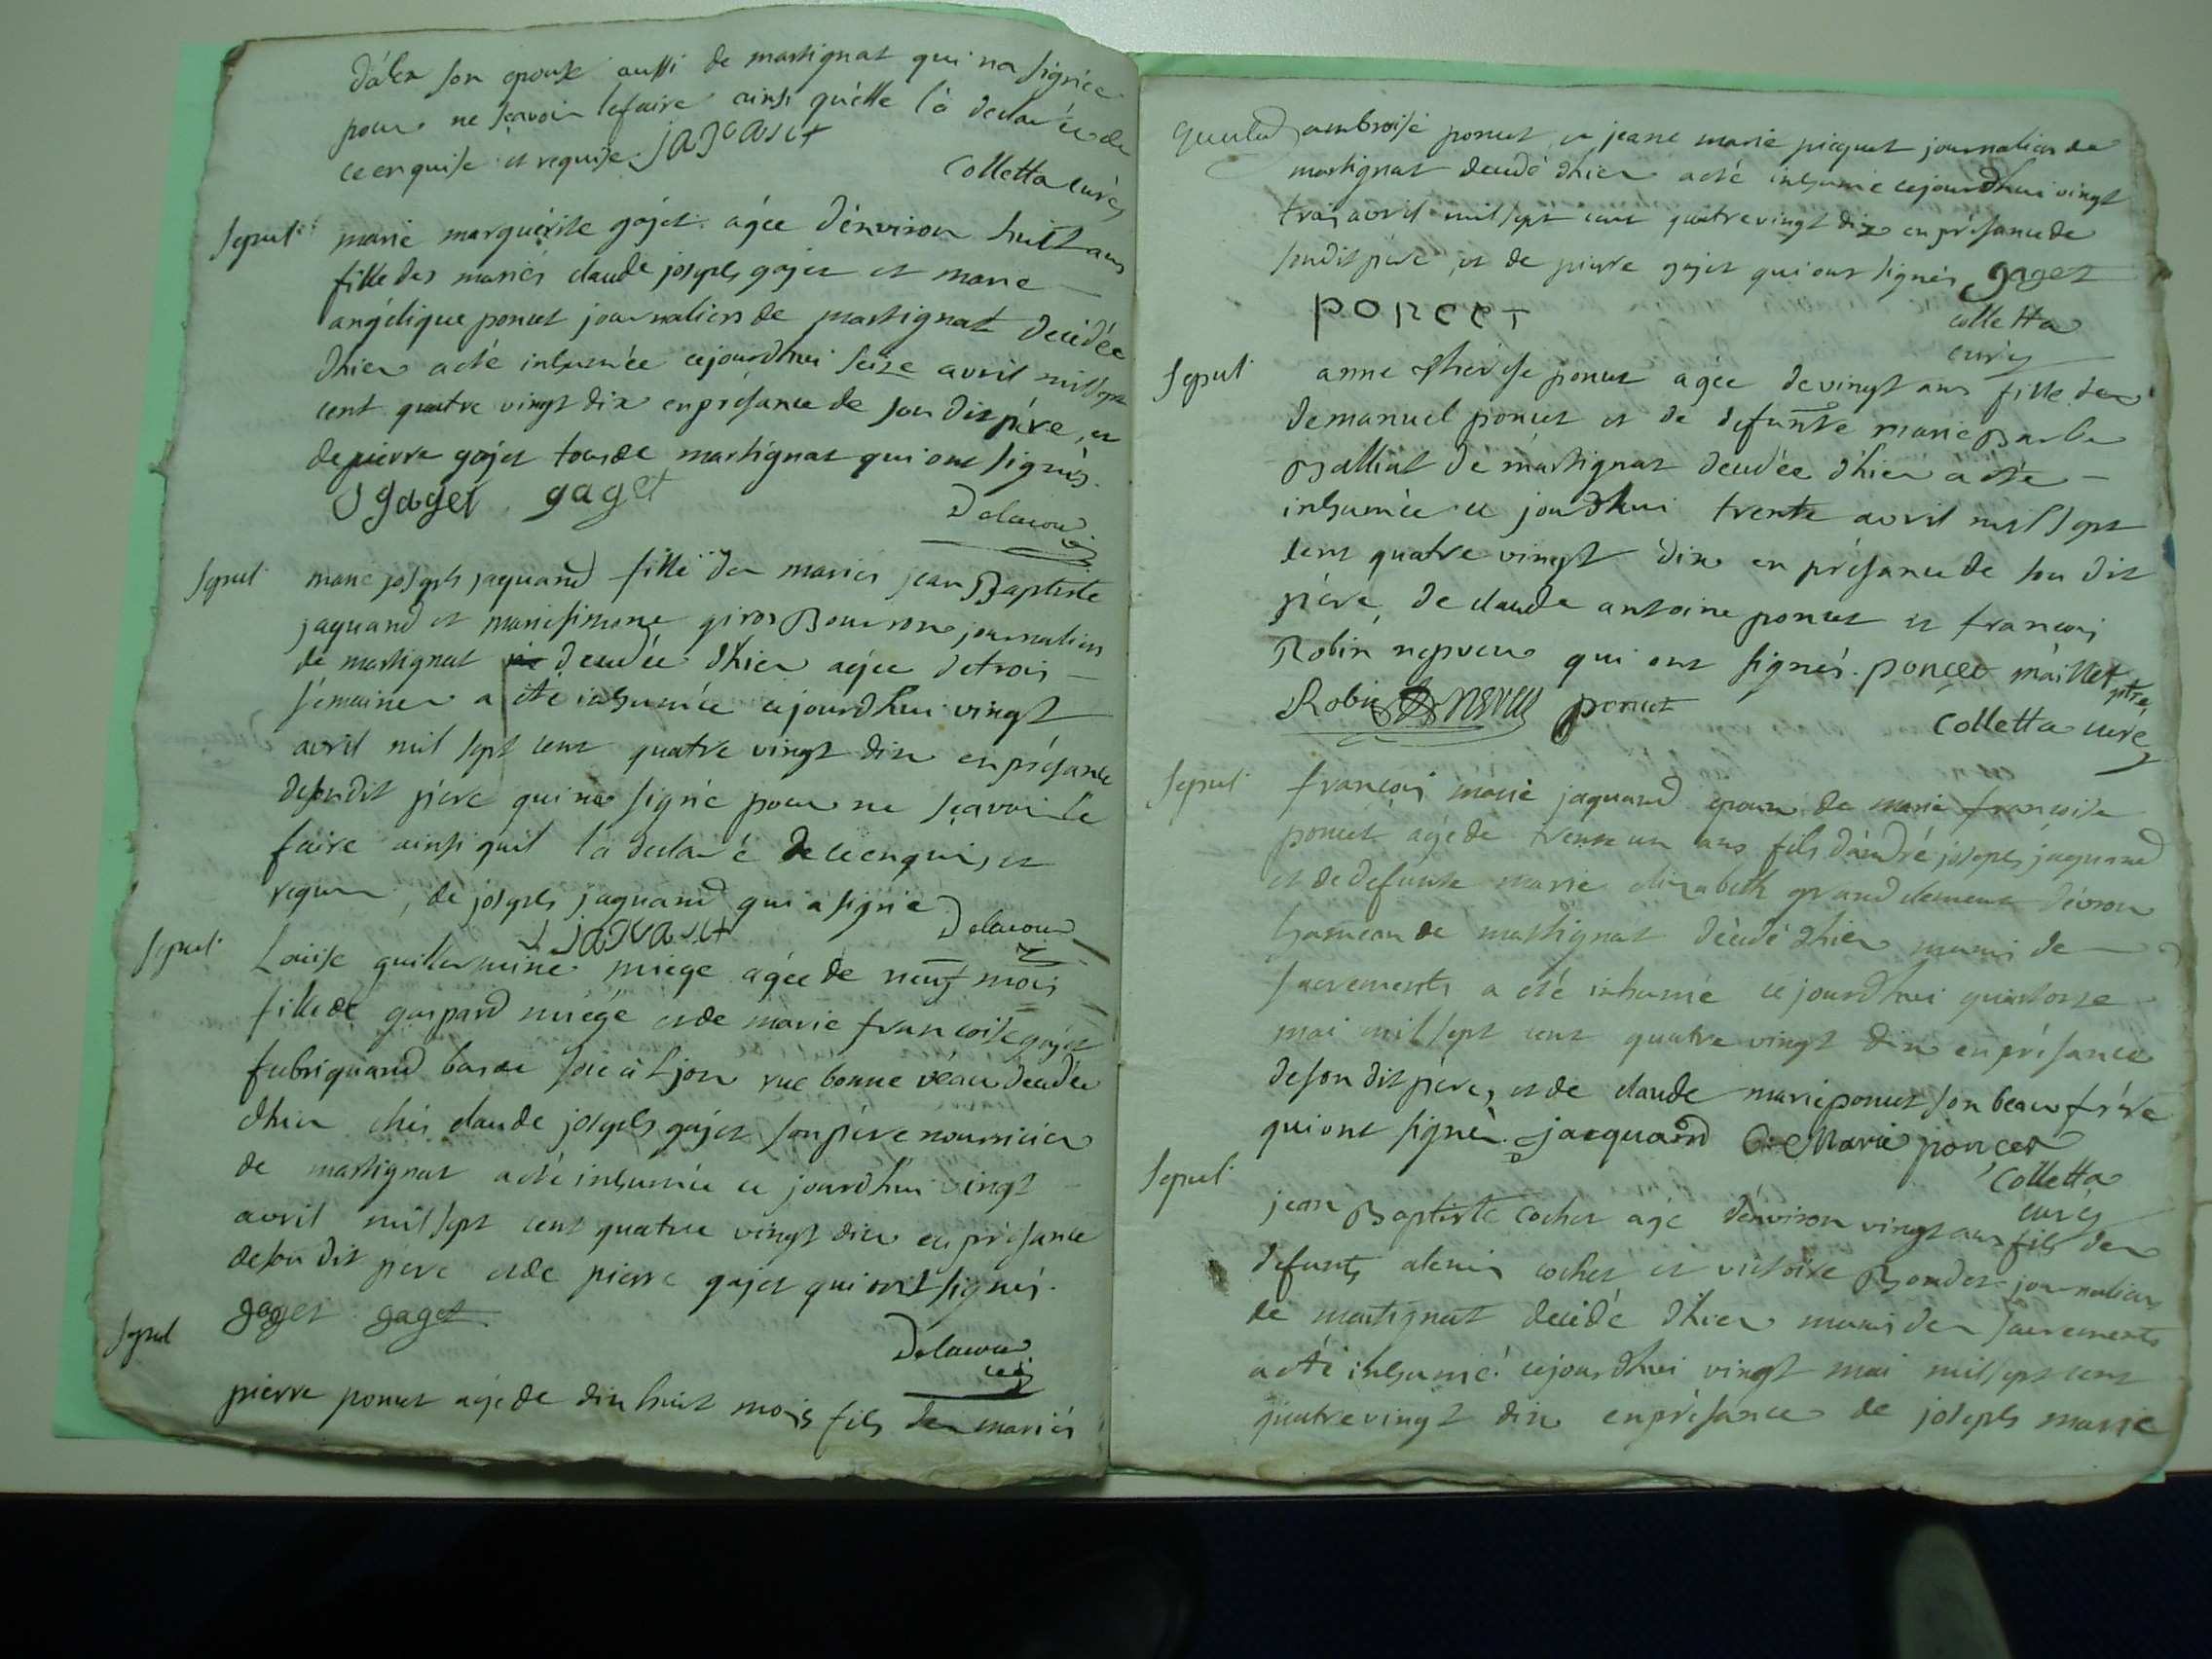 d'alex son epouse aussi de martignat qui na signée
pour ne sçavoir lefaire ainsi quélle lá declarée de
ce enquise et requise jaquand
Colletta curé
sepult marie marguérite gajet agée dénviron huit ans
fille des mariés claude joseph gajet et marie
angélique poncet journaliers de martignat decédée
dhier a eté inhumée cejourdhui seize avril mil sept
cent quatre vingt dix en présance de son dit pére, et
de pierre gajet tous de martignat qui ont signés.
J gaget gaget
Delacour
sepult marie joseph jaquand fille des mariés jean Baptiste
jaquand et marie simone giros Bourron journaliers
de martignat decedée dhier agée de trois
sémaines a été inhumée cejourdhui vingt
avril mil sept cent quatre vingt dix en présance
desondit pére qui na signé pour ne sçavoir le
faire ainsi quil lá declaré de ce enquis, et
requis, de joseph jaquand qui á signé
J jaquand Delacour
sepult Loüise guillermine miége agée de neuf mois
fille de gaspard miégé et de marie françoise gajet
fabriquand bas de soie à Lion rue bonne véau decedée
dhier chés claude joseph gajet son pére nourricier
de martignat a eté inhumée ce jourdhui vingt
avril mil sept cent quatre vingt dix en présance
de son dit pere et de pierre gajet qui ont signés.
gaget gaget
Delacour
sepul
pierre poncet agé de dix huit mois fils des mariés
ambroise poncet et jeane marie picquet journaliers de
martignat decedé dhier a eté inhumé cejourdhui vingt
trois avril mil sept cent quatre vingt dix en présance de
sondit pére, et de pierre gajet qui ont signés gaget
poncet
colletta
curé
sepult anne thérése poncet agée de vingt ans fille des
demanuel poncet et de defunte marie Barbe
Balliat de martignat decedée d'hier a été
inhumée ce jourdhui trente avril mil sept
cent quatre vingt dix en présance de son dit
pére, de claude antoine poncet et françois
Robin nepveu qui ont signés. poncet maillet ptre
Robin neveu poncet
Colletta curé
sepult françois marie jaquand epoux de marie françoise
poncet agé de trente un ans fils d'andré joseph jaquand
et de defunte marie elizabeth grand clement dévron
hameau de martignat décedé dhier muni de
sacrements a eté inhumé ce jourdhui quatorze
mai mil sept cent quatre vingt dix en présance
deson dit pére, et de claude marie poncet son beau frére
qui ont signés. jacquand C Marie poncet
Colletta
curé
sepult
jean Baptiste cochet agé dénviron vingt ans fils des
defunts alexis cochet et victoire Bondet journaliers
de martignat decédé dhier muni des sacrements
a eté inhumé cejourdhui vingt mai mil sept cent
quatre vingt dix en présance de joseph marie